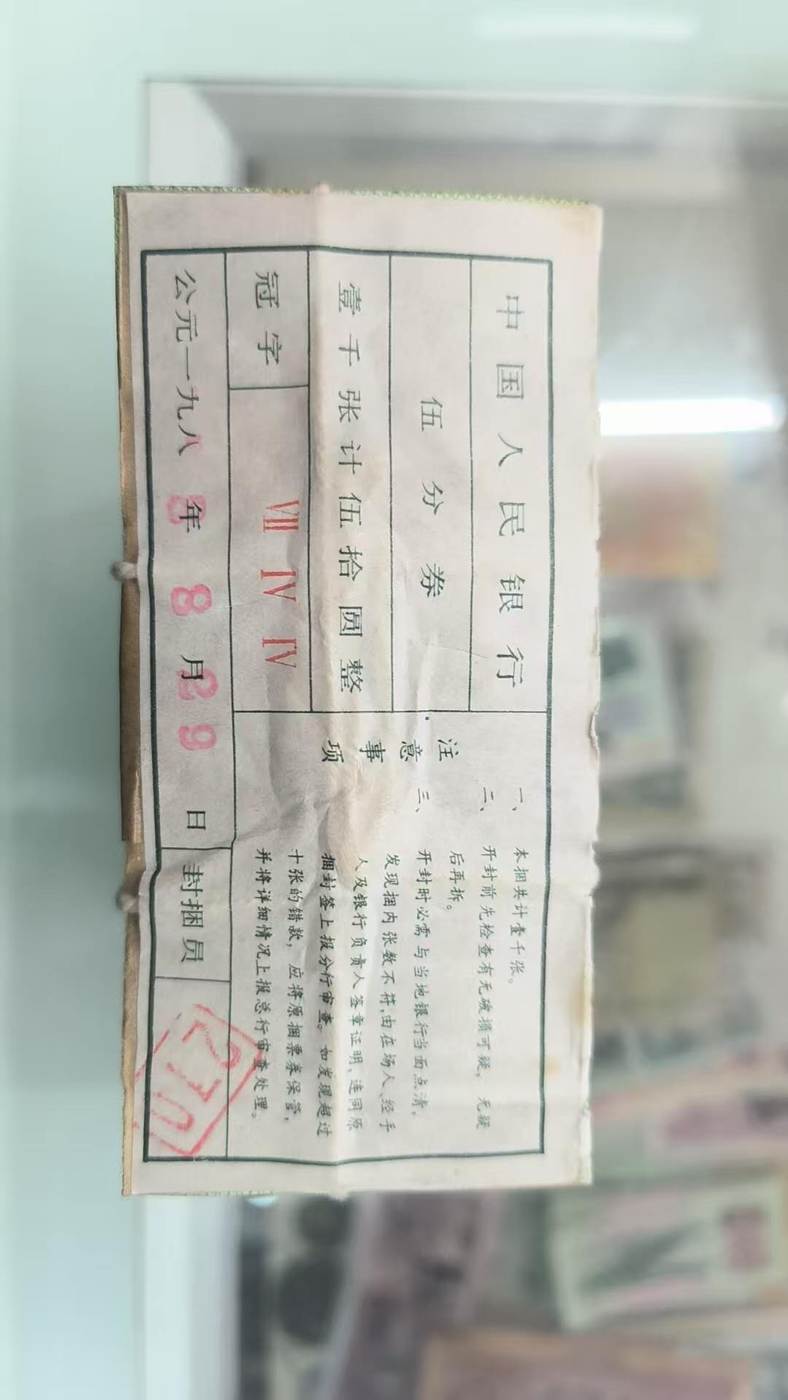 中国人民银行
伍分券
壹千张计伍拾圆整
冠字 VII IV IV
公元一九八8年8月29日
封捆员
注意事项
一、本捆共计壹千张。
二、开封前先检查有无破损可疑，无疑
后再拆。
三、开封时必需与当地银行当面点清，
发现捆内张数不符，由在场人、经手
人及银行负责人签章证明，连同原
捆封签上报分行审查。如发现超过
十张的错款，应将原捆票券保管，
并将详细情况上报总行审查处理。